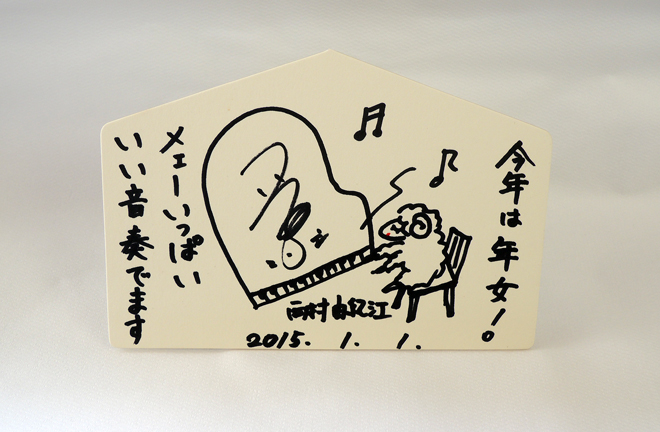 今年は年女!。
メェーいっぱい
いい音奏でます
西村由紀江
2015. 1. 1.